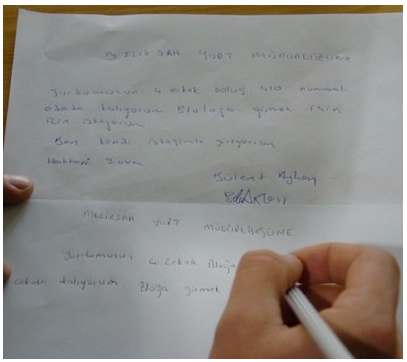 MELİKŞAH YURT MÜDÜRLÜĞÜNE
Yurtumuzun 4 Erkek bloğ 410 numaralı
odada kalıyorum Bloğa girmek için
izin istiyorum
Ben kendi isteğimle giriyorum
Bülent Ayhan
MELİKŞAH YURT MÜDÜRLÜĞÜNE
Yurtumuzun 4 Erkek Bloğu
odada kalıyorum. Bloğa girmek